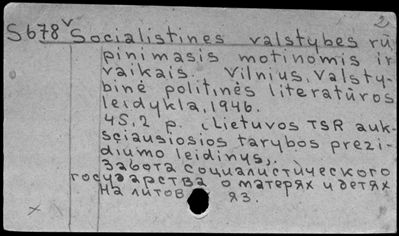 2
S678v Socialistines valstybes rū
pinimasis motinomis ir
vaikais. Vilnius, Valsty-
binė politinės literatūros
leidykla, 1946.
45,2 p. (Lietuvos TSR auk-
sciausiosios tarybos prezi-
diumo leidinys).
Забота социалистического
государства о матерях и детях
На литов яз.
x